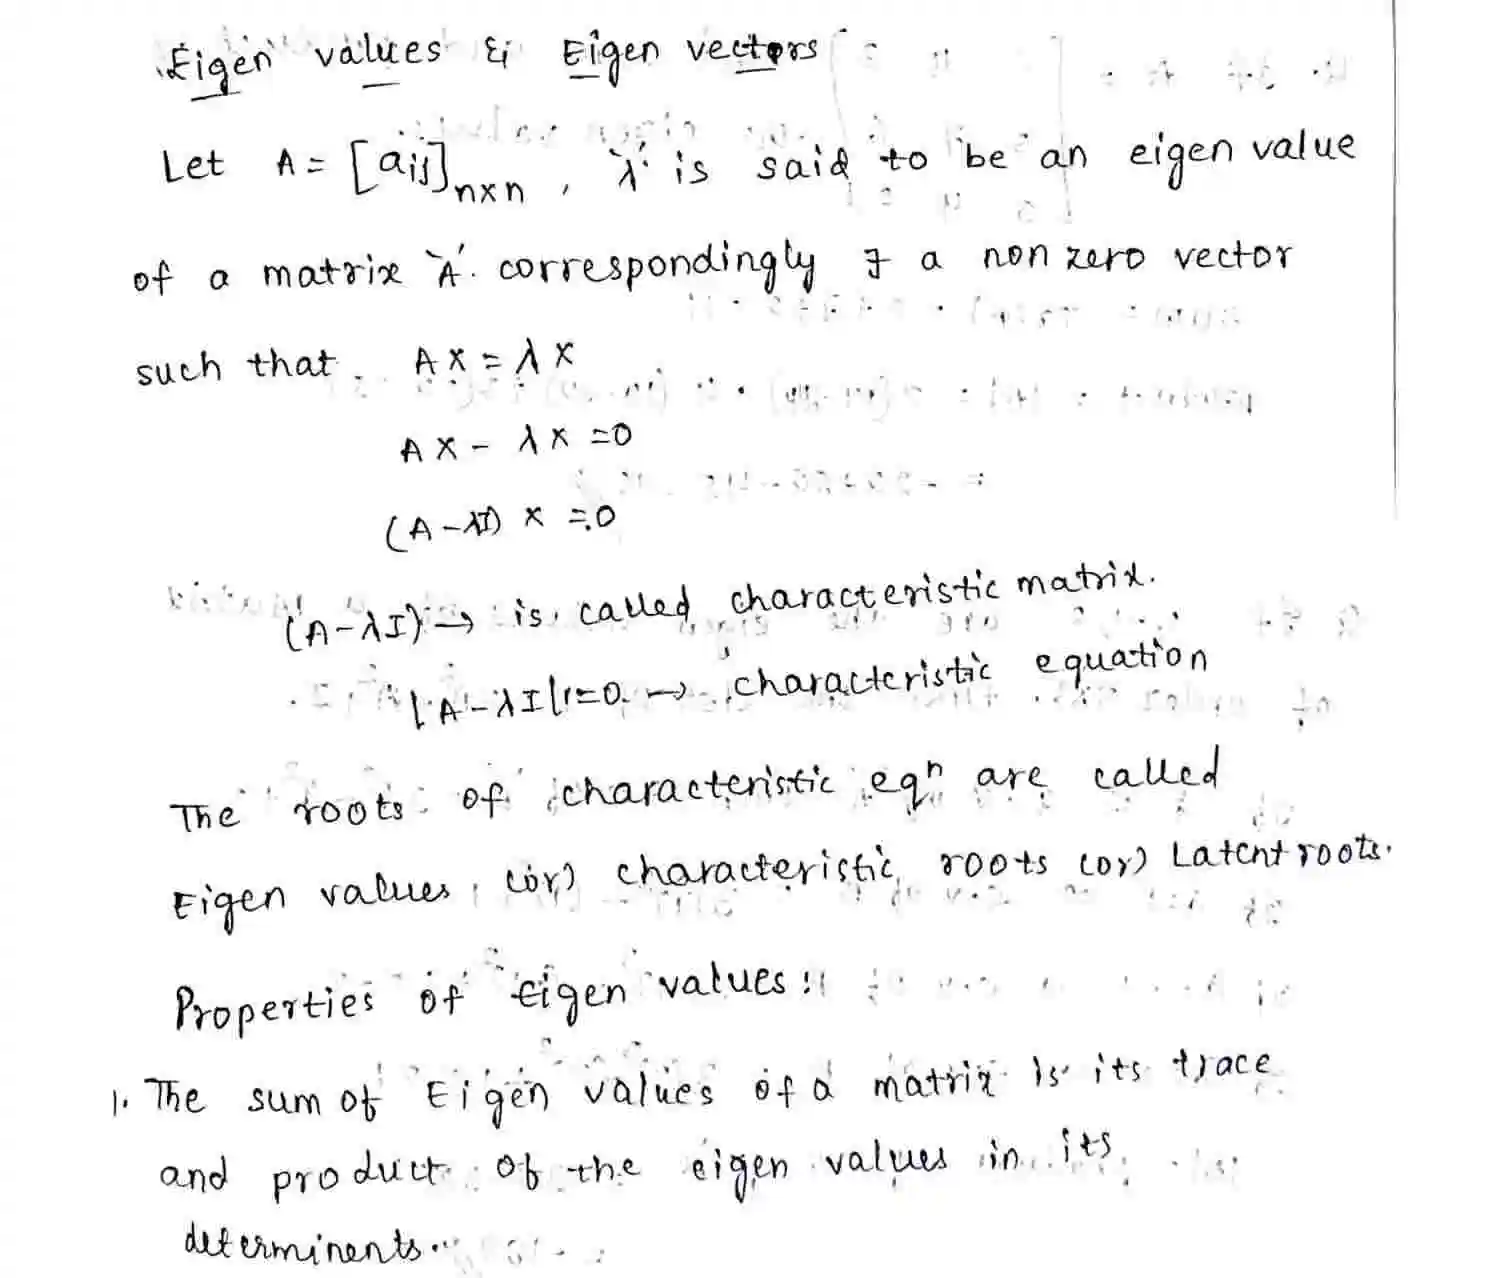 Eigen values & Eigen vectors
Let A = [aij]nxn , `λ' is said to be an eigen value
of a matrix `A'. correspondingly ∃ a non zero vector
such that AX = λX
AX - λX = 0
(A - λI) X = 0
(A-λI) → is called characteristic matrix.
|A-λI| = 0 → characteristic equation
The roots of characteristic eqn are called
Eigen values (or) characteristic roots (or) Latent roots.
Properties of Eigen values:
1. The sum of Eigen values of a matrix is its trace
and product of the eigen values in its
determinents.